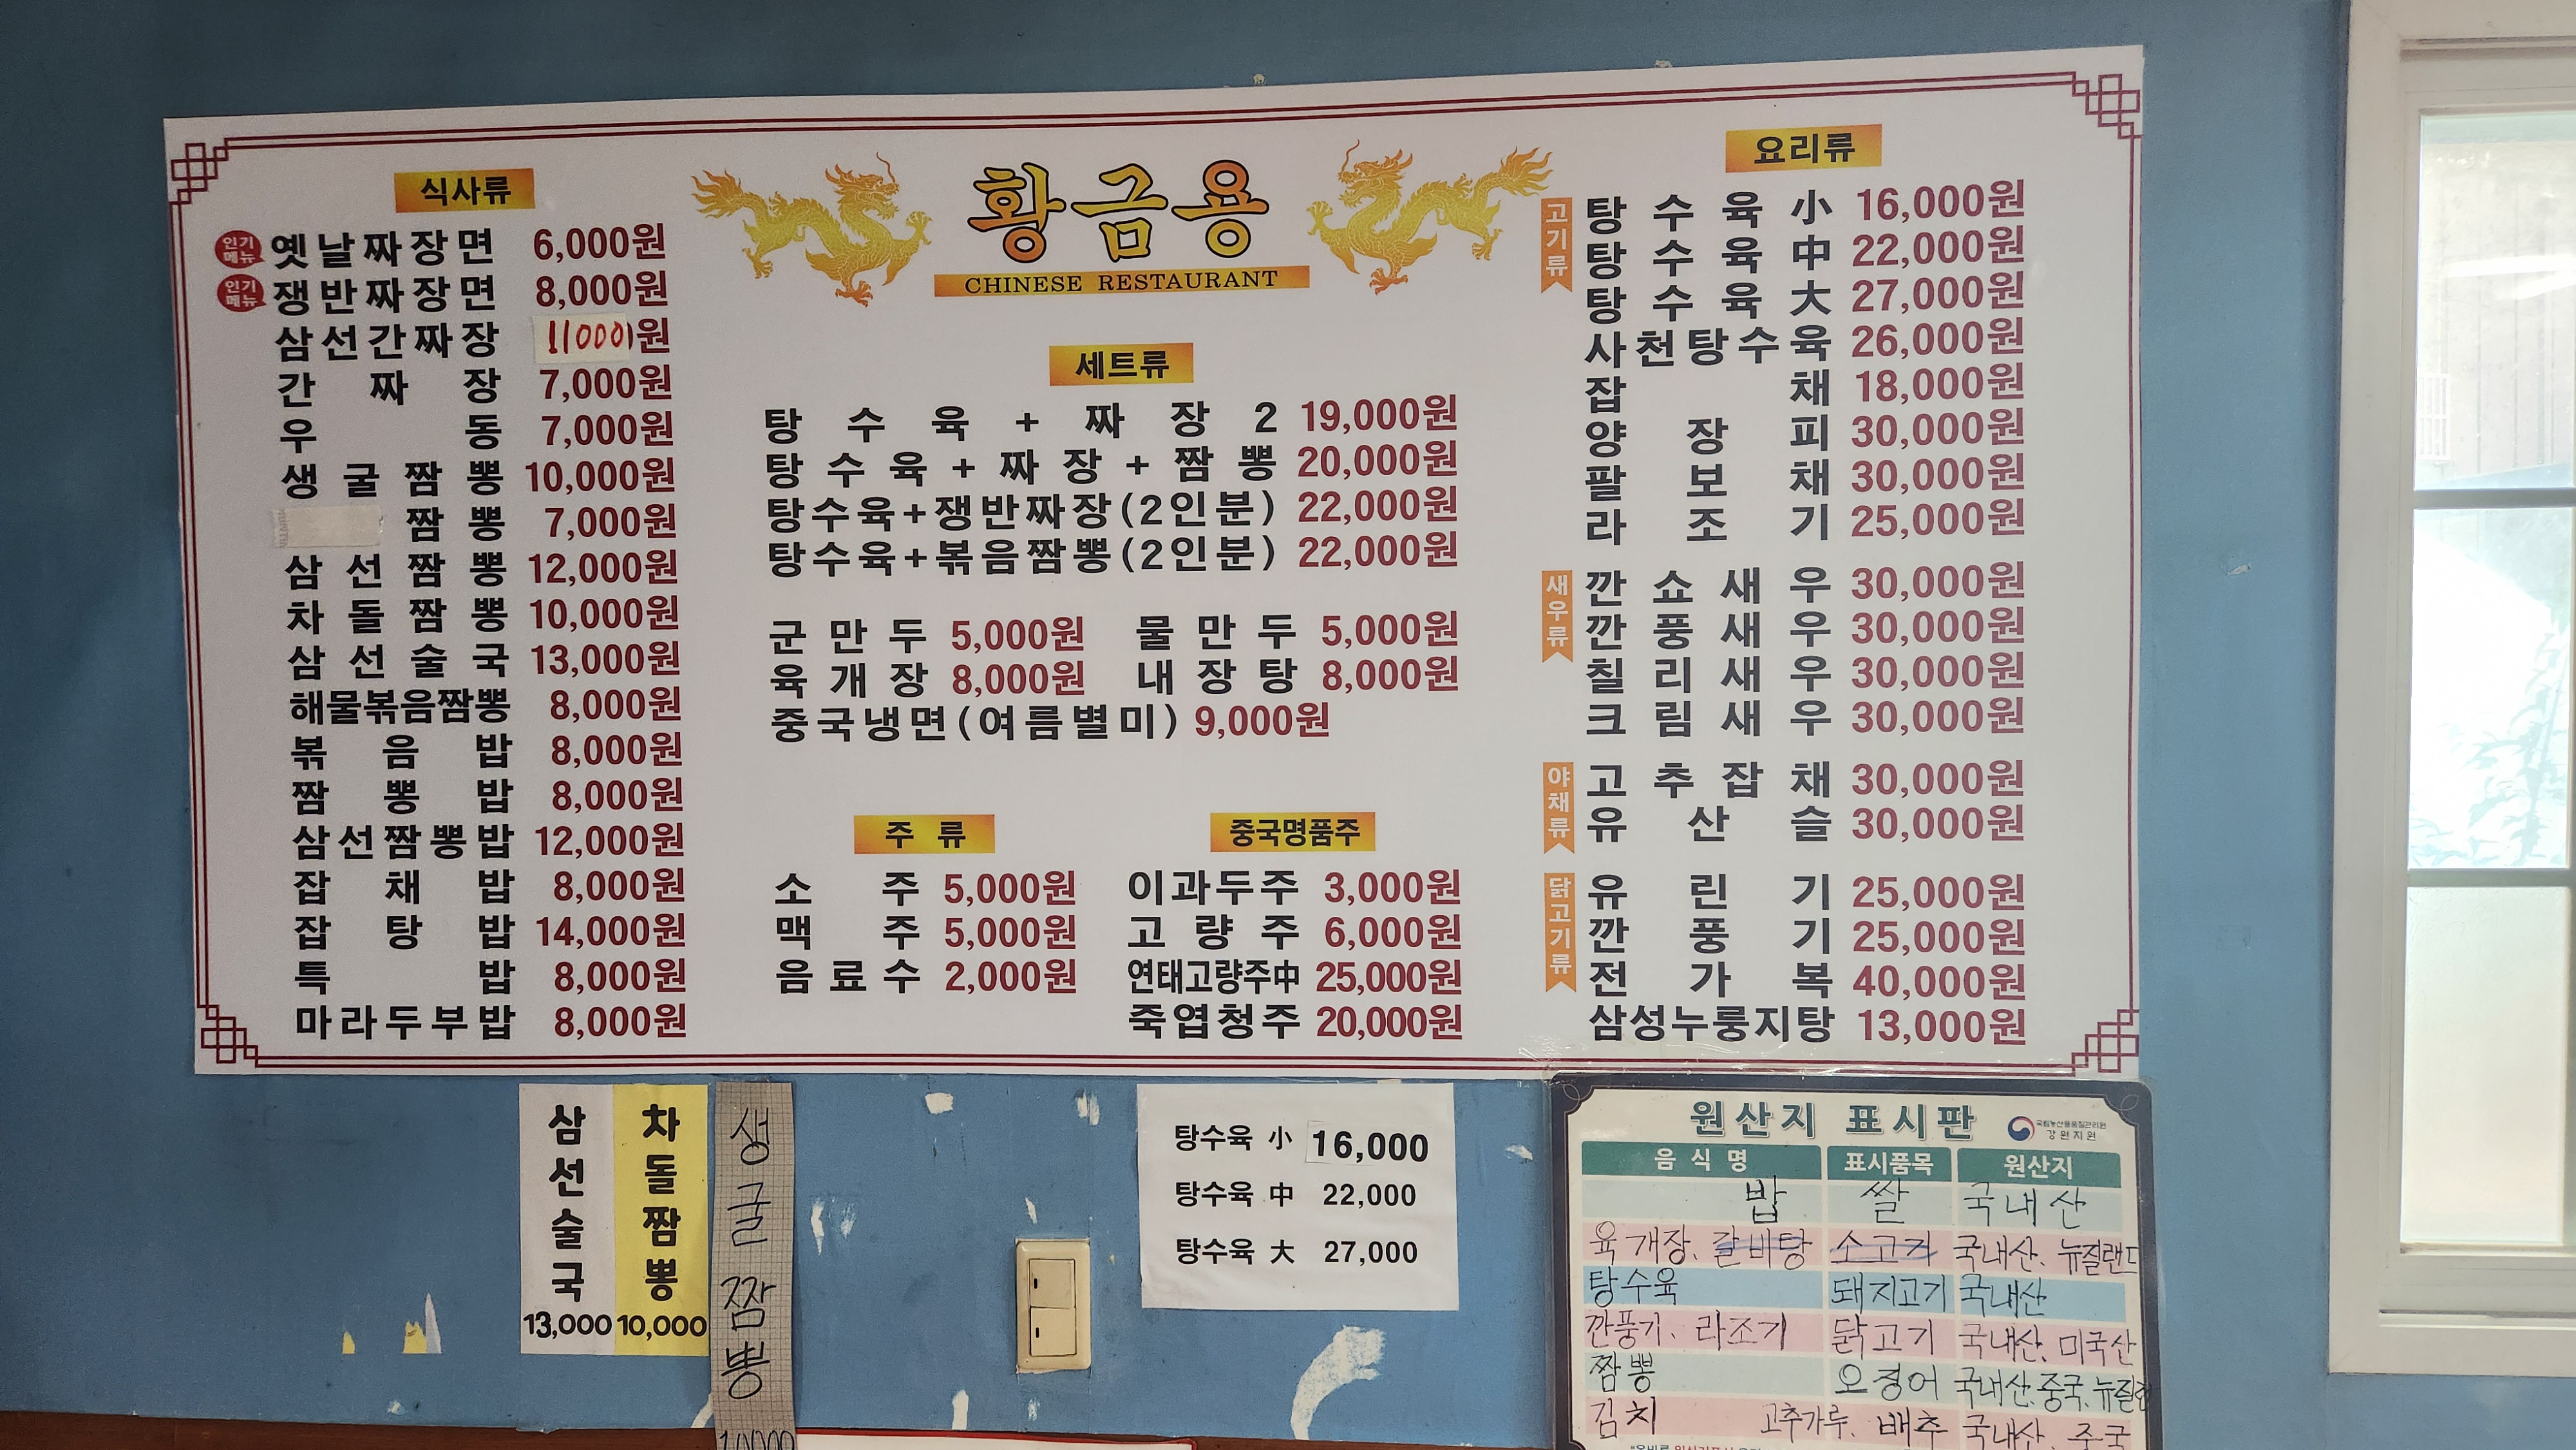 황금용
CHINESE RESTAURANT
식사류
인기메뉴 옛날짜장면 6,000원
인기메뉴 쟁반짜장면 8,000원
삼선간짜장 11000원
간짜장 7,000원
우동 7,000원
생굴짬뽕 10,000원
짬뽕 7,000원
삼선짬뽕 12,000원
차돌짬뽕 10,000원
삼선술국 13,000원
해물볶음짬뽕 8,000원
볶음밥 8,000원
짬뽕밥 8,000원
삼선짬뽕밥 12,000원
잡채밥 8,000원
잡탕밥 14,000원
특밥 8,000원
마라두부밥 8,000원
세트류
탕수육+짜장2 19,000원
탕수육+짜장+짬뽕 20,000원
탕수육+쟁반짜장(2인분) 22,000원
탕수육+볶음짬뽕(2인분) 22,000원
군만두 5,000원 물만두 5,000원
육개장 8,000원 내장탕 8,000원
중국냉면(여름별미) 9,000원
주류
소주 5,000원
맥주 5,000원
음료수 2,000원
중국명품주
이과두주 3,000원
고량주 6,000원
연태고량주中 25,000원
죽엽청주 20,000원
요리류
고기류
탕수육 小 16,000원
탕수육 中 22,000원
탕수육 大 27,000원
사천탕수육 26,000원
잡채 18,000원
양장피 30,000원
팔보채 30,000원
라조기 25,000원
새우류
깐쇼새우 30,000원
깐풍새우 30,000원
칠리새우 30,000원
크림새우 30,000원
야채류
고추잡채 30,000원
유산슬 30,000원
닭고기류
유린기 25,000원
깐풍기 25,000원
전가복 40,000원
삼성누룽지탕 13,000원
삼선술국
13,000
차돌짬뽕
10,000
생굴짬뽕
탕수육 小 16,000
탕수육 中 22,000
탕수육 大 27,000
원산지 표시판
국립농산물품질관리원
강원지원
음식명 표시품목 원산지
밥 쌀 국내산
육개장. 갈비탕 소고기 국내산. 뉴질랜드
탕수육 돼지고기 국내산
깐풍기. 라조기 닭고기 국내산. 미국산
짬뽕 오징어 국내산.중국.
김치 고추가루. 배추 국내산. 중국